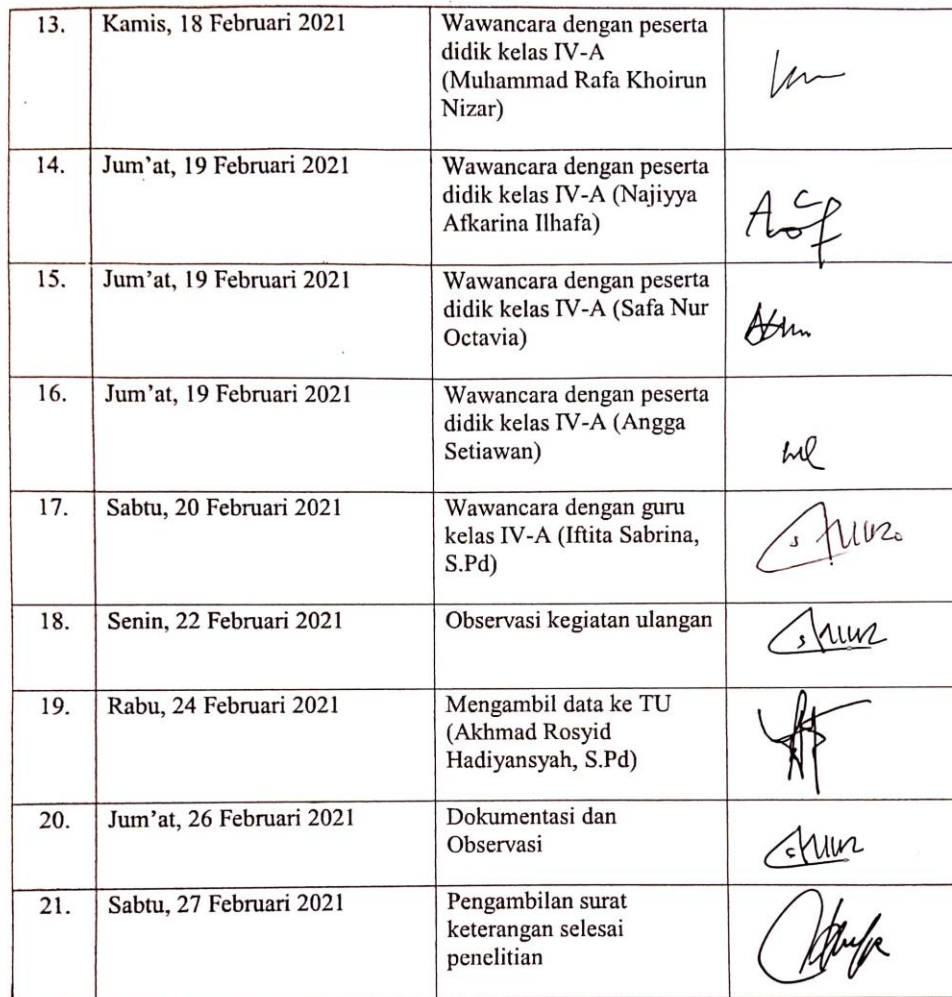 13.
Kamis, 18 Februari 2021
Wawancara dengan peserta
didik kelas IV-A
(Muhammad Rafa Khoirun
Nizar)
14.
Jum'at, 19 Februari 2021
Wawancara dengan peserta
didik kelas IV-A (Najiyya
Afkarina Ilhafa)
15.
Jum'at, 19 Februari 2021
Wawancara dengan peserta
didik kelas IV-A (Safa Nur
Octavia)
16.
Jum'at, 19 Februari 2021
Wawancara dengan peserta
didik kelas IV-A (Angga
Setiawan)
17.
Sabtu, 20 Februari 2021
Wawancara dengan guru
kelas IV-A (Iftita Sabrina,
S.Pd)
18.
Senin, 22 Februari 2021
Observasi kegiatan ulangan
19.
Rabu, 24 Februari 2021
Mengambil data ke TU
(Akhmad Rosyid
Hadiyansyah, S.Pd)
20.
Jum'at, 26 Februari 2021
Dokumentasi dan
Observasi
21.
Sabtu, 27 Februari 2021
Pengambilan surat
keterangan selesai
penelitian